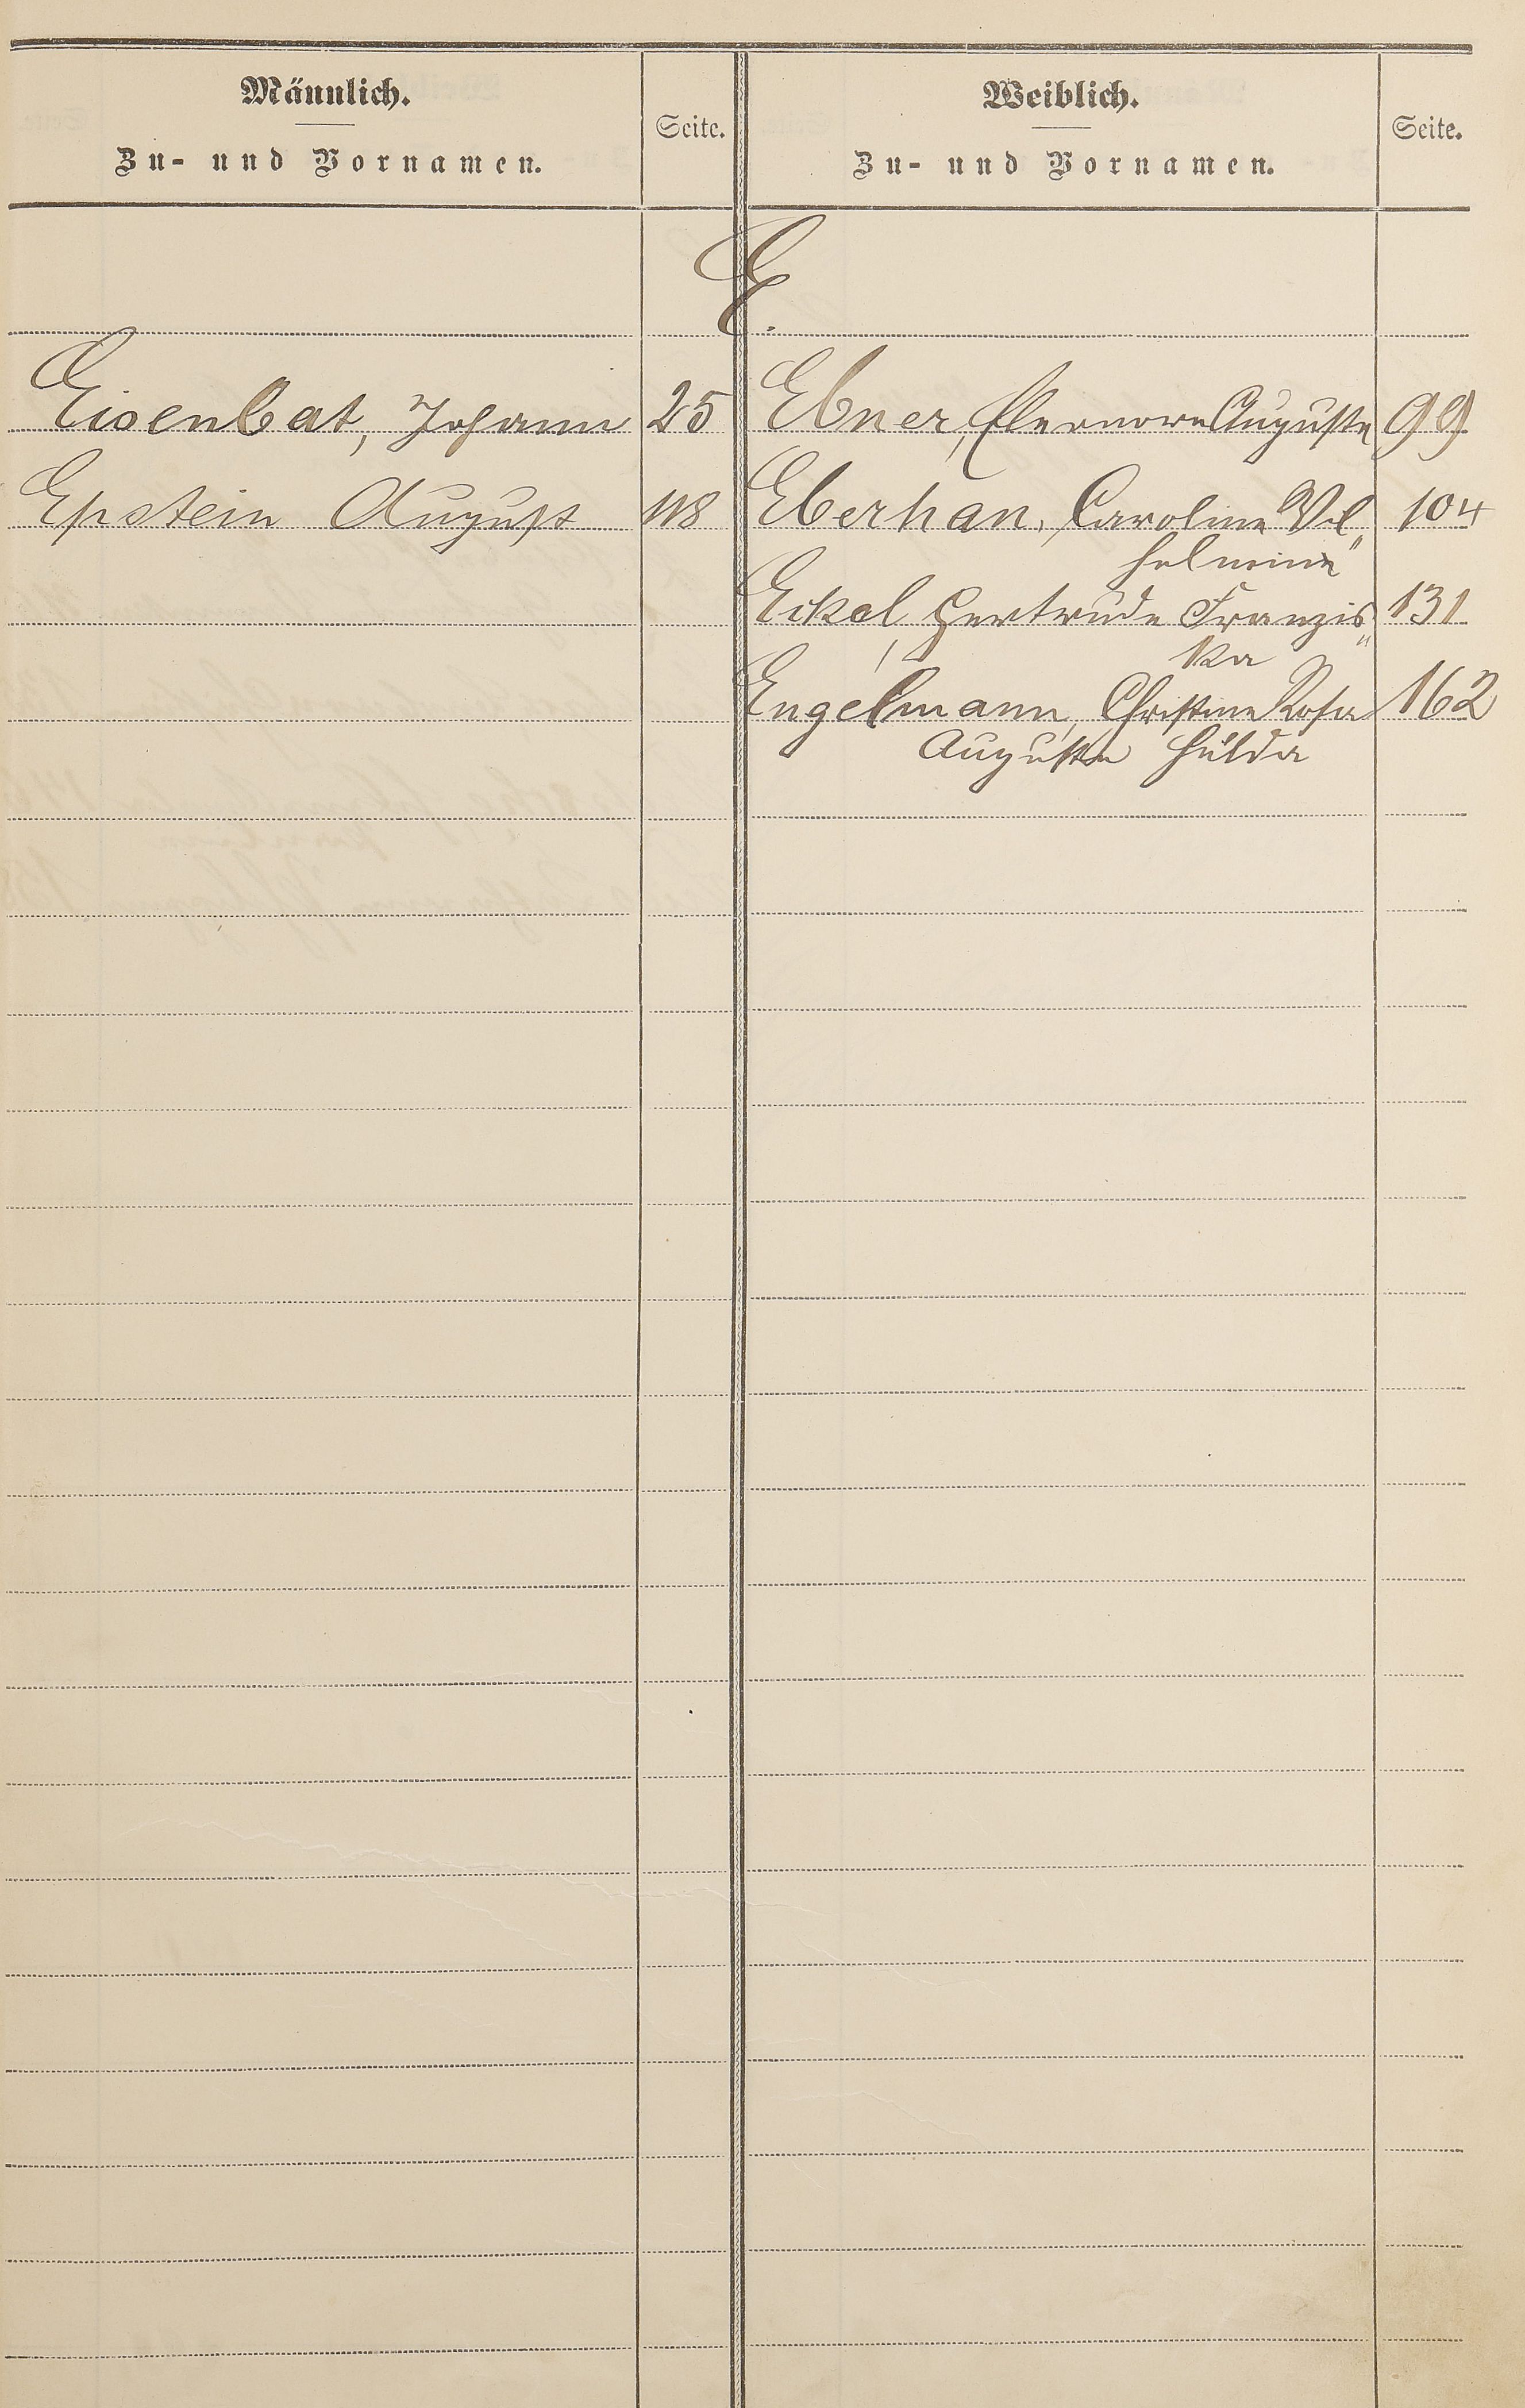 Männlich.
Zu- und Vornamen.
Seite.
Weiblich.
Zu- und Vornamen.
Seite.
E.
Eisenbat, Johann 25
Epstein August 118
Ebner, Eleonore Auguste 99
Eberhan, Caroline Wil„
helmine 104
Eckel, Gertrude Franzis„ 131
ka
Engelmann, Christine Rosa 162
Auguste Hulda